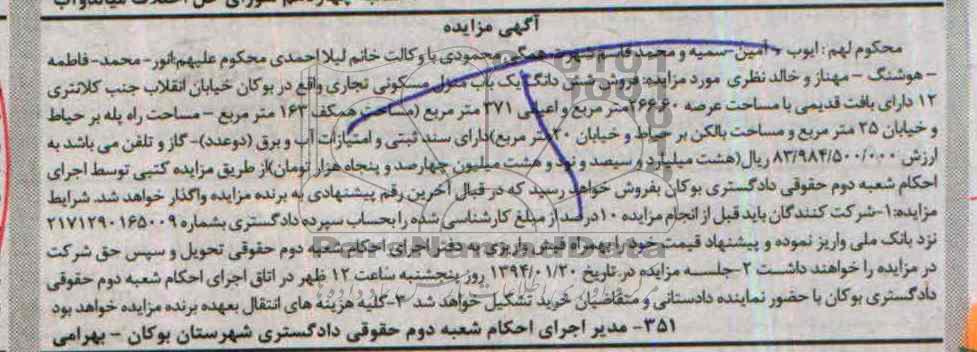 آگهی مزایده
محکوم لهم: ایوب - آمین-سمیه و محمد قاسم شهرت همگی محمودی با وکالت خانم لیلا احمدی محکوم علیهم:انور- محمد- فاطمه
- هوشنگ - مهناز و خالد نظری مورد مزایده: فروش شش دانگ یک باب منزل مسکونی تجاری واقع در بوکان خیابان انقلاب جنب کلانتری
۱۲ دارای بافت قدیمی با مساحت عرصه ۲۶۶/۶۰ متر مربع و اعیانی ۳۷۱ متر مربع (مساحت همکف ۱۶۳ متر مربع - مساحت راه پله بر حیاط
و خیابان ۲۵ متر مربع و مساحت بالکن بر حیاط و خیابان ۲۰متر مربع)دارای سند ثبتی و امتیازات آب و برق (دوعدد)- گاز و تلفن می باشد به
ارزش ۸۳/۹۸۴/۵۰۰/۰۰۰ ریال(هشت میلیارد و سیصد و نود و هشت میلیون چهارصد و پنجاه هزار تومان)از طریق مزایده کتبی توسط اجرای
احکام شعبه دوم حقوقی دادگستری بوکان بفروش خواهد رسید که در قبال آخرین رقم پیشنهادی به برنده مزایده واگذار خواهد شد. شرایط
مزایده:۱-شرکت کنندگان باید قبل از انجام مزایده ۱۰درصد از مبلغ کارشناسی شده را بحساب سپرده دادگستری بشماره ۲۱۷۱۲۹۰۱۶۵۰۰۹
نزد بانک ملی واریز نموده و پیشنهاد قیمت خود را بهمراه فیش واریزی به دفتر اجرای احکام شعبه دوم حقوقی تحویل و سپس حق شرکت
در مزایده را خواهند داشت ۲-جلسه مزایده در تاریخ ۱۳۹۴/۰۱/۲۰ روز پنجشنبه ساعت ۱۲ ظهر در اتاق اجرای احکام شعبه دوم حقوقی
دادگستری بوکان با حضور نماینده دادستانی و متقاضیان خرید تشکیل خواهد شد ۳-کلیه هزینه های انتقال بعهده برنده مزایده خواهد بود
۳۵۱- مدیر اجرای احکام شعبه دوم حقوقی دادگستری شهرستان بوکان - بهرامی
ParsNamadData